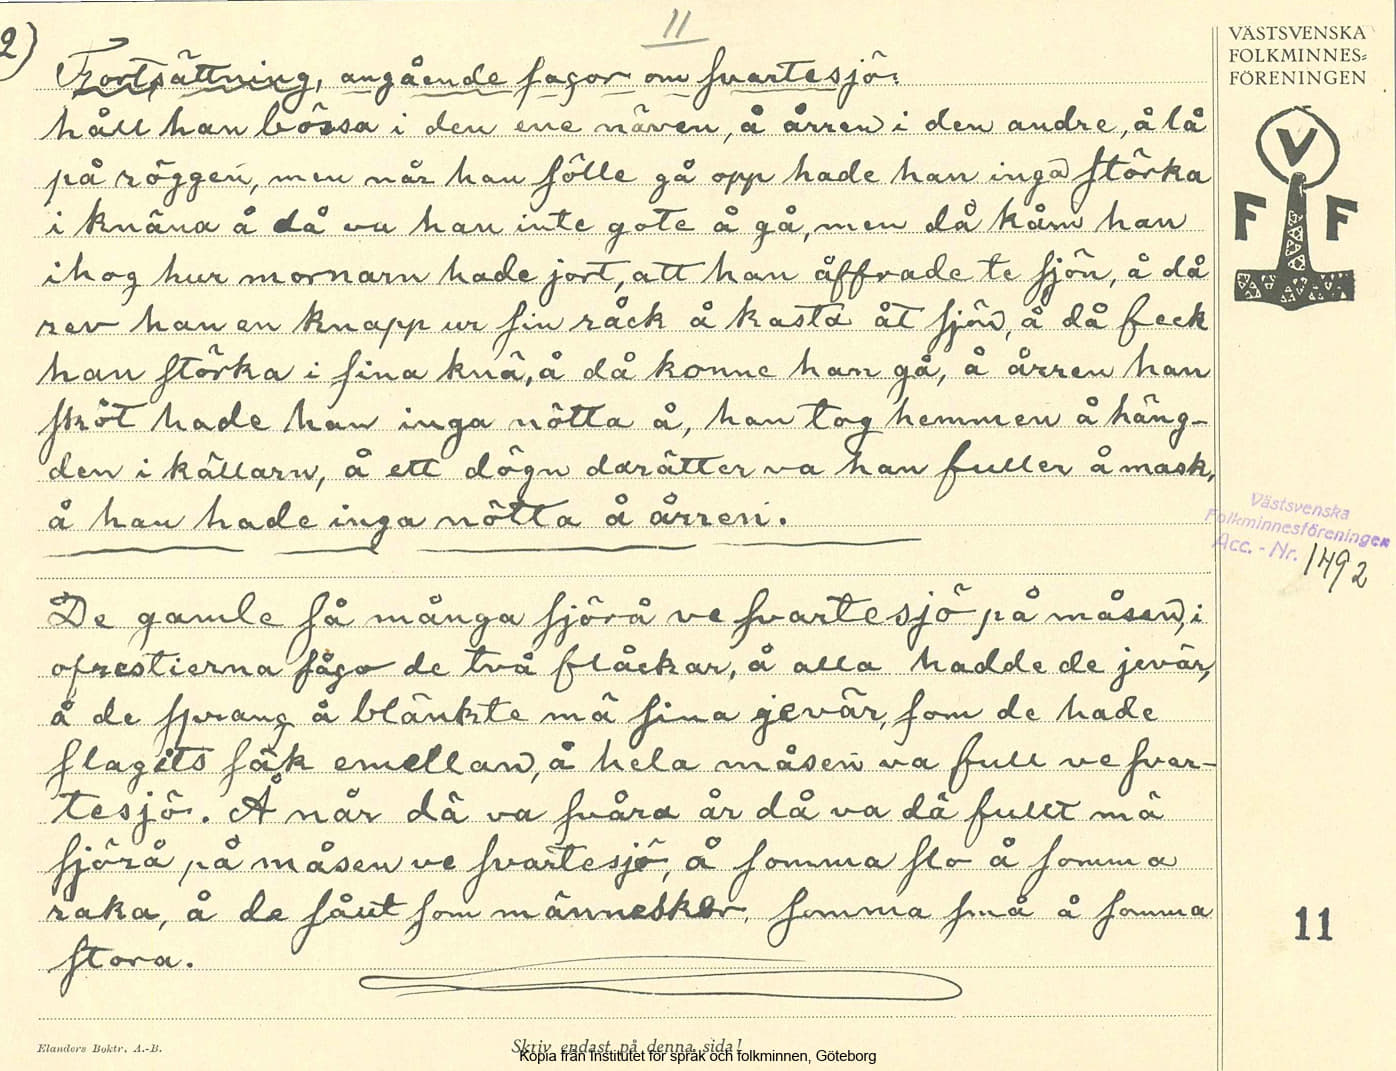 2)
11
Fortsättning, angående sagor om svartesjö:
håll han bössa i den ene näven, å årren i den andre, å lå
på röggen, men når han sölle gå opp hade han inga störka
i knäna å då va han inte gote å gå, men då kåm han
ihog hur mornarn hade jort, att han åffrade te sjön, å då
rev han en knapp ur sin råck å kasta åt sjön, å då feck
han störka i sina knä, å då konne han gå, å årren han
sköt hade han inga nötta å, han tog hemmen å häng-
den i källarn, å ett dögn darätter va han fuller å mask,
å han hade inga nötta å årren.
De gamle så många sjörå ve svartesjö på måsen, i
oprestierna sågo de två flåckar, å alla hadde de jevär,
å de sprang å blänkte mä sina jevär, som de hade
slagits säk emellan, å hela måsen va full ve svar-
tesjö. Å når dä va svåra år då va dä fullt mä
sjörå på måsen ve svartesjö, å somma slo å somma
raka, å de såut som männesker, somma små å somma
stora.
VÄSTSVENSKA
FOLKMINNES-
FÖRENINGEN
V
F F
Västsvenska
Folkminnesföreningen
Acc. - Nr. 1492
11
Elanders Boktr. A.-B.
Skriv endast på denna sida!
Kopia från Institutet för språk och folkminnen, Göteborg